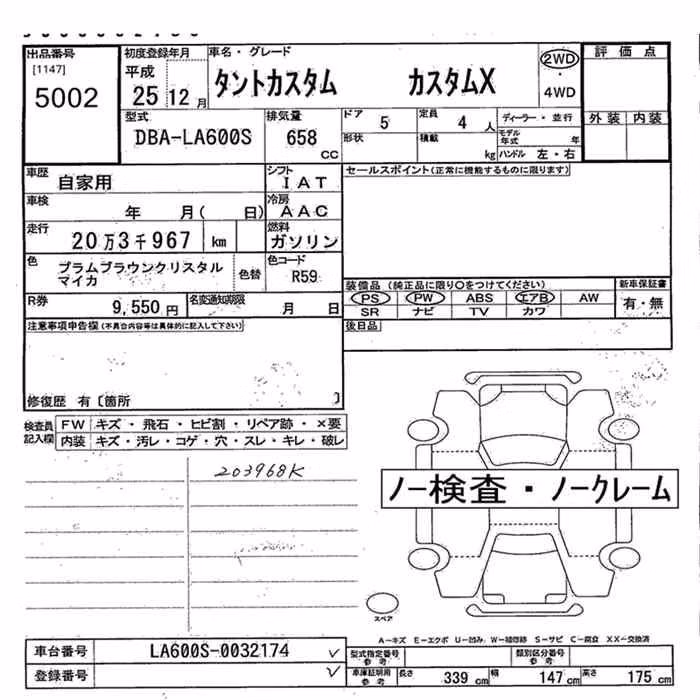 出品番号 初度登録年月 車名・グレード 2WD 評価点
[1147] 平成 ・
5002 25 12月 タントカスタム カスタムX 4WD
型式 排気量 ドア 5 定員 4人 ディーラー・並行 外装 内装
DBA-LA600S 658 cc 形状 積載 kg モデル年式 年
ハンドル 左・右
車歴 自家用 シフト IAT セールスポイント(正常に機能するものに限ります)
車検 年 月( 日) 冷房 AAC
走行 20万3千967 km 燃料 ガソリン
色 プラムブラウンクリスタル 色替 色コード R59
マイカ
装備品(純正品に限り〇をつけてください) 新車保証書
R券 9,550円 名変通知期限 月 日 PS PW ABS エアB AW 有・無
SR ナビ TV カワ
注意事項申告欄(不具合内容等は具体的に記入して下さい) 後日品
修復歴 有〔箇所 〕
検査員記入欄 FW キズ・飛石・ヒビ割・リペア跡・×要
内装 キズ・汚レ・コゲ・穴・スレ・キレ・破レ
203968K
ノー検査・ノークレーム
スペア
A-キズ E-エクボ U-凹み W-補修跡 S-サビ C-腐食 XX-交換済
車台番号 LA600S-0032174 ✓ 型式指定番号 参考 類別区分番号 参考
登録番号 ✓ 車庫証明用 参考 長さ 339 cm 幅 147 cm 高さ 175 cm